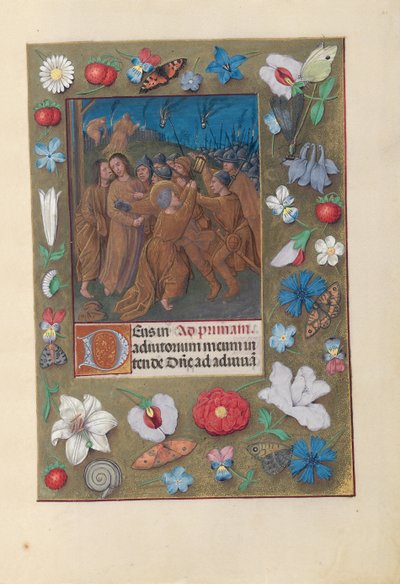 Deus in Ad primam
adiutorium meum in
tende Dn̄e ad adiuuā